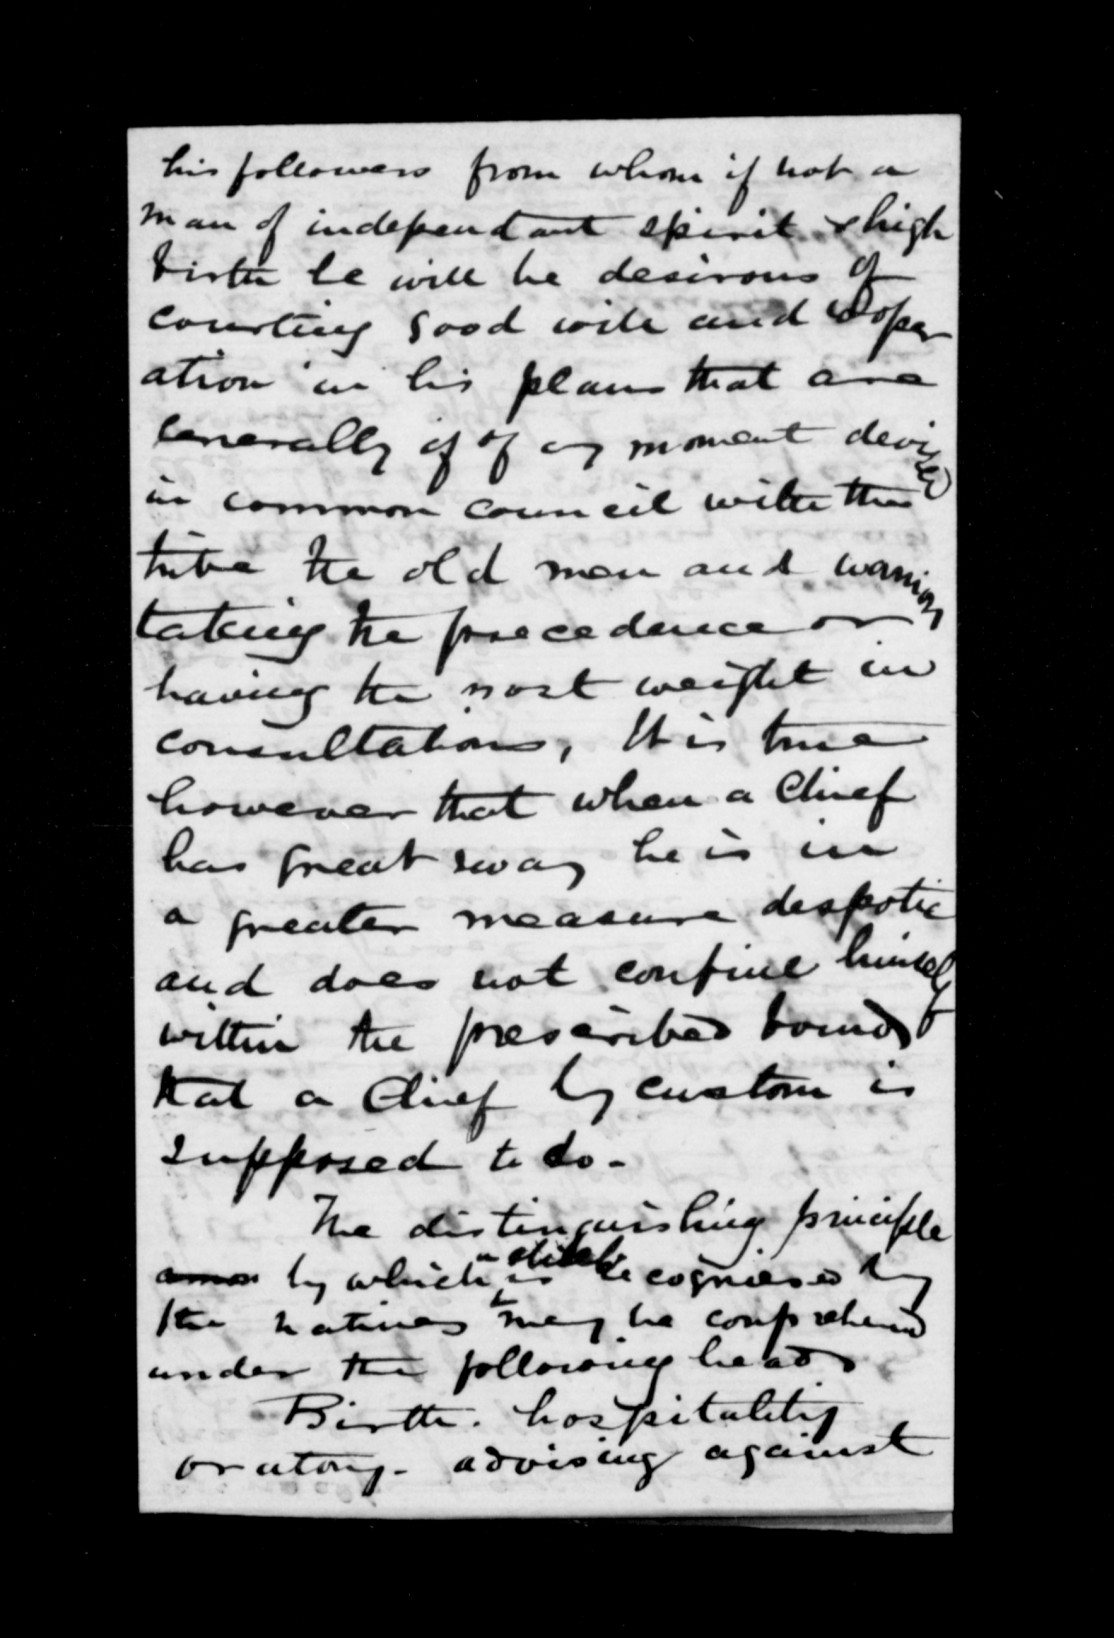 his followers from whom if not a
man of independant spirit & high
birth he will be desirous of
courting good will and cooper
ation in his plans that are
Generally if of any moment devised
in common council with the
tribe the old men and warriors
taking the precedence or
having the most weight in
consultations, It is true
however that when a Chief
has great sway he is in
a greater measure despotic
and does not confine himself
within the prescribed bounds
that a Chief by custom is
supposed to do -
The distinguishing principle
by which a chief is recognised by
the natives may be comprehend
under the following heads
Birth. hospitality
oratory - advising against